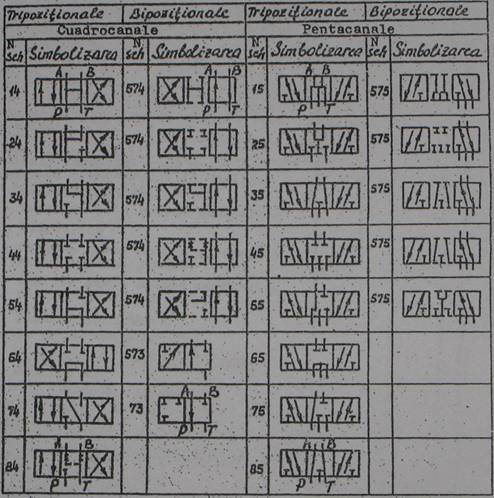 Tripoziţionale Bipoziţionale Tripoziţionale Bipoziţionale
Cuadrocanale Pentacanale
N sch Simbolizarea N sch Simbolizarea N sch Simbolizarea N sch Simbolizarea
A B A B A B
14 574 15 575
P T P T P T
24 574 25 575
34 574 35 575
44 574 45 575
54 574 55 575
64 573 65
A B
74 73 75
P T
A B A B
84 85
P T P T